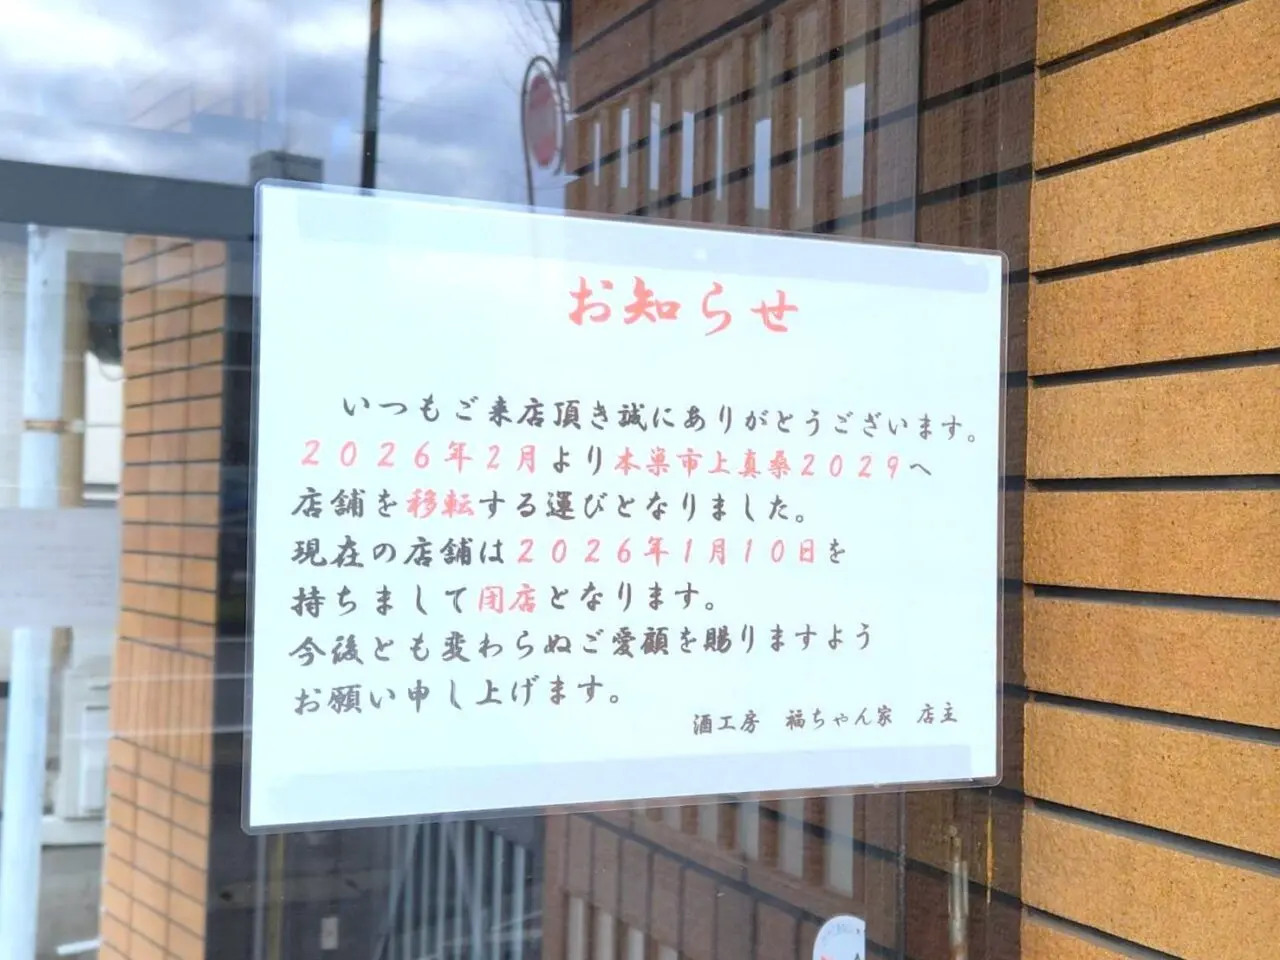 お知らせ
いつもご来店頂き誠にありがとうございます。
２０２６年２月より本巣市上真桑２０２９へ
店舗を移転する運びとなりました。
現在の店舗は２０２６年１月１０日を
持ちまして閉店となります。
今後とも変わらぬご愛顧を賜りますよう
お願い申し上げます。
酒工房　福ちゃん家　店主